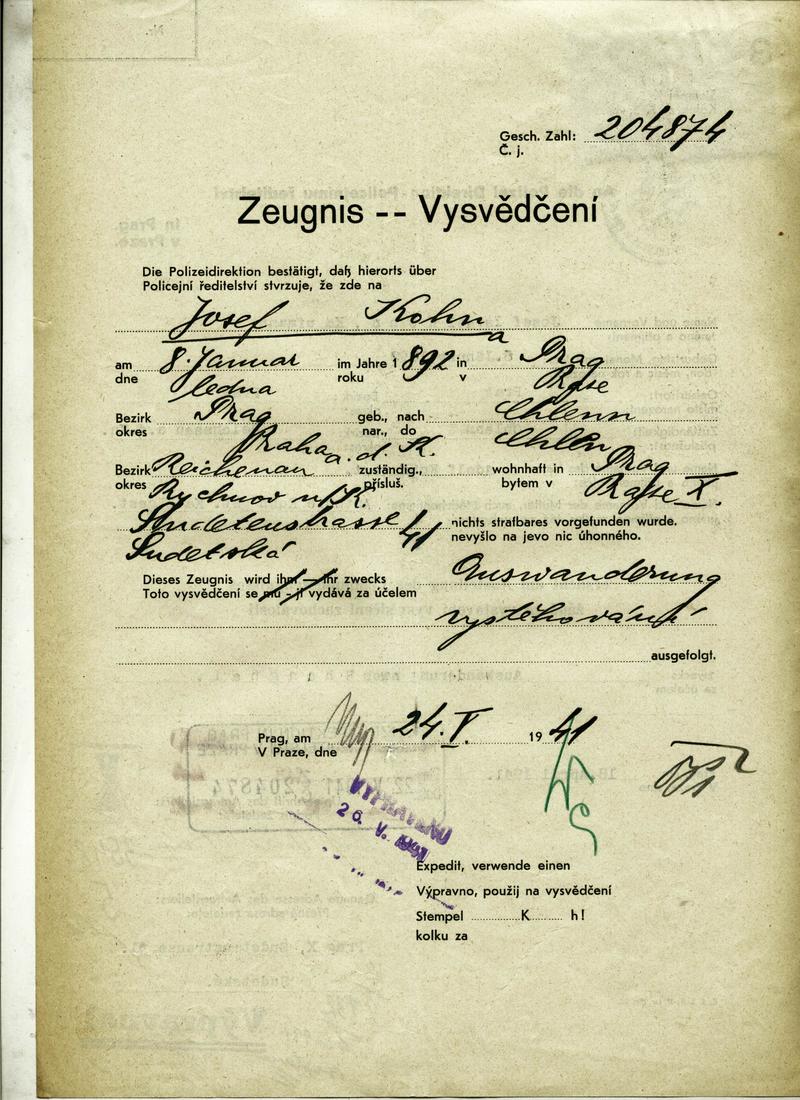 Gesch. Zahl: 204874
Č. j.
Zeugnis -- Vysvědčení
Die Polizeidirektion bestätigt, daß hierorts über
Policejní ředitelství stvrzuje, že zde na
Josef Kohn
a
am 8. Januar im Jahre 1892 in Prag
dne ledna roku v Praze
Bezirk Prag geb., nach Chlenn
okres Praha nar., do Chlen
Bezirk Reichenau a. d. K. zuständig., wohnhaft in Prag
okres Rychnov n/K. přísluš. bytem v Praze X.
Sudetenstrasse 41 nichts strafbares vorgefunden wurde.
Sudetská nevyšlo na jevo nic úhonného.
Dieses Zeugnis wird ihm — ihr zwecks Auswanderung
Toto vysvědčení se mu - jí vydává za účelem
vystěhování
ausgefolgt.
Prag, am 24. V. 1941
V Praze, dne
VYPRAVENO
26. V. 1941
Expedit, verwende einen
Výpravno, použij na vysvědčení
Stempel K h!
kolku za